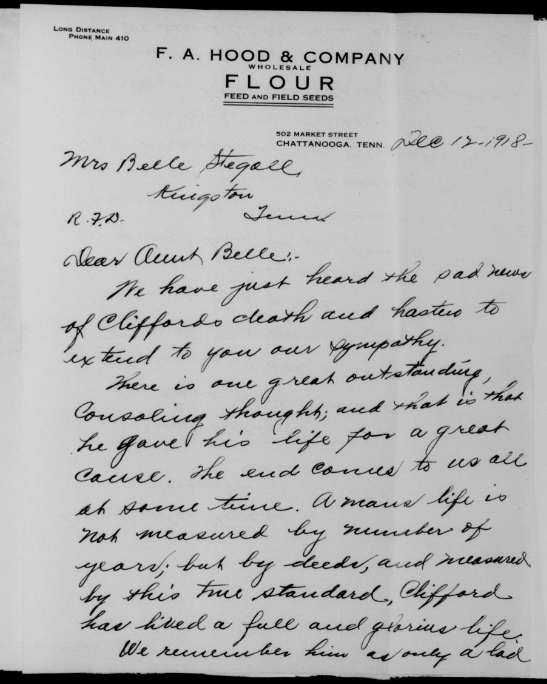 LONG DISTANCE
PHONE MAIN 410
F. A. HOOD & COMPANY
WHOLESALE
FLOUR
FEED AND FIELD SEEDS
502 MARKET STREET
CHATTANOOGA, TENN. Dec 12-1918-
Mrs Belle Stegall,
Kingston
R.F.D. Tenn
Dear Aunt Belle:-
We have just heard the sad news
of Cliffords death and hasten to
extend to you our sympathy.
There is one great outstanding,
consoling thought; and that is that
he gave his life for a great
cause. The end comes to us all
at some time. A mans life is
not measured by number of
years; but by deeds, and measured
by this true standard, Clifford
has lived a full and glorius life.
We remember him as only a lad